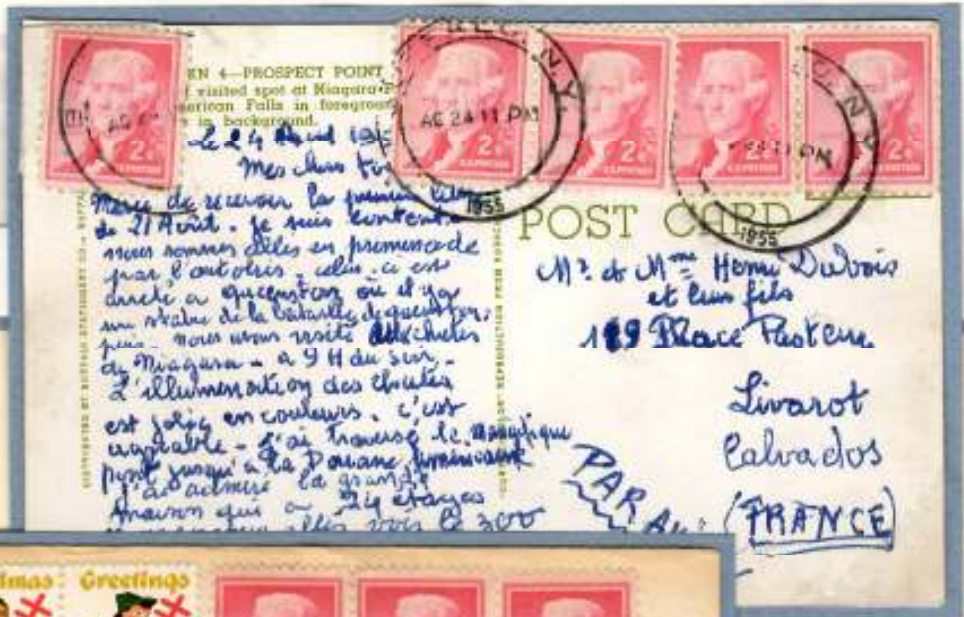 EN 4—PROSPECT POINT
visited spot at Niagara F
erican Falls in foregroun
s in background.
2¢
2¢
2¢
2¢
2¢
N.Y.
AG 24 11 PM
1955
N.Y.
11 PM
1955
POST CARD
Le 24 Août 19
Mes chers
de recevoir la première
de 21 Août. Je suis contente
nous sommes allés en promenade
par l'autobus. celui-ci est
arrêté a Queenston où il y a
un statue de la bataille de queenston.
puis nous avons visité chutes
de Niagara - a 9 H du soir.
L'illumination des chutes
est jolie en couleurs. c'est
J'ai traversé le magnifique
pont jusqu'à la Douane americaine
J'ai admiré la grande
maison qui a 24 étages
le 300
Mr. et Mme Henri Dubois
et leurs fils
Place Pasteur
Livarot
Calvados
(FRANCE)
PAR
tmas Greetings